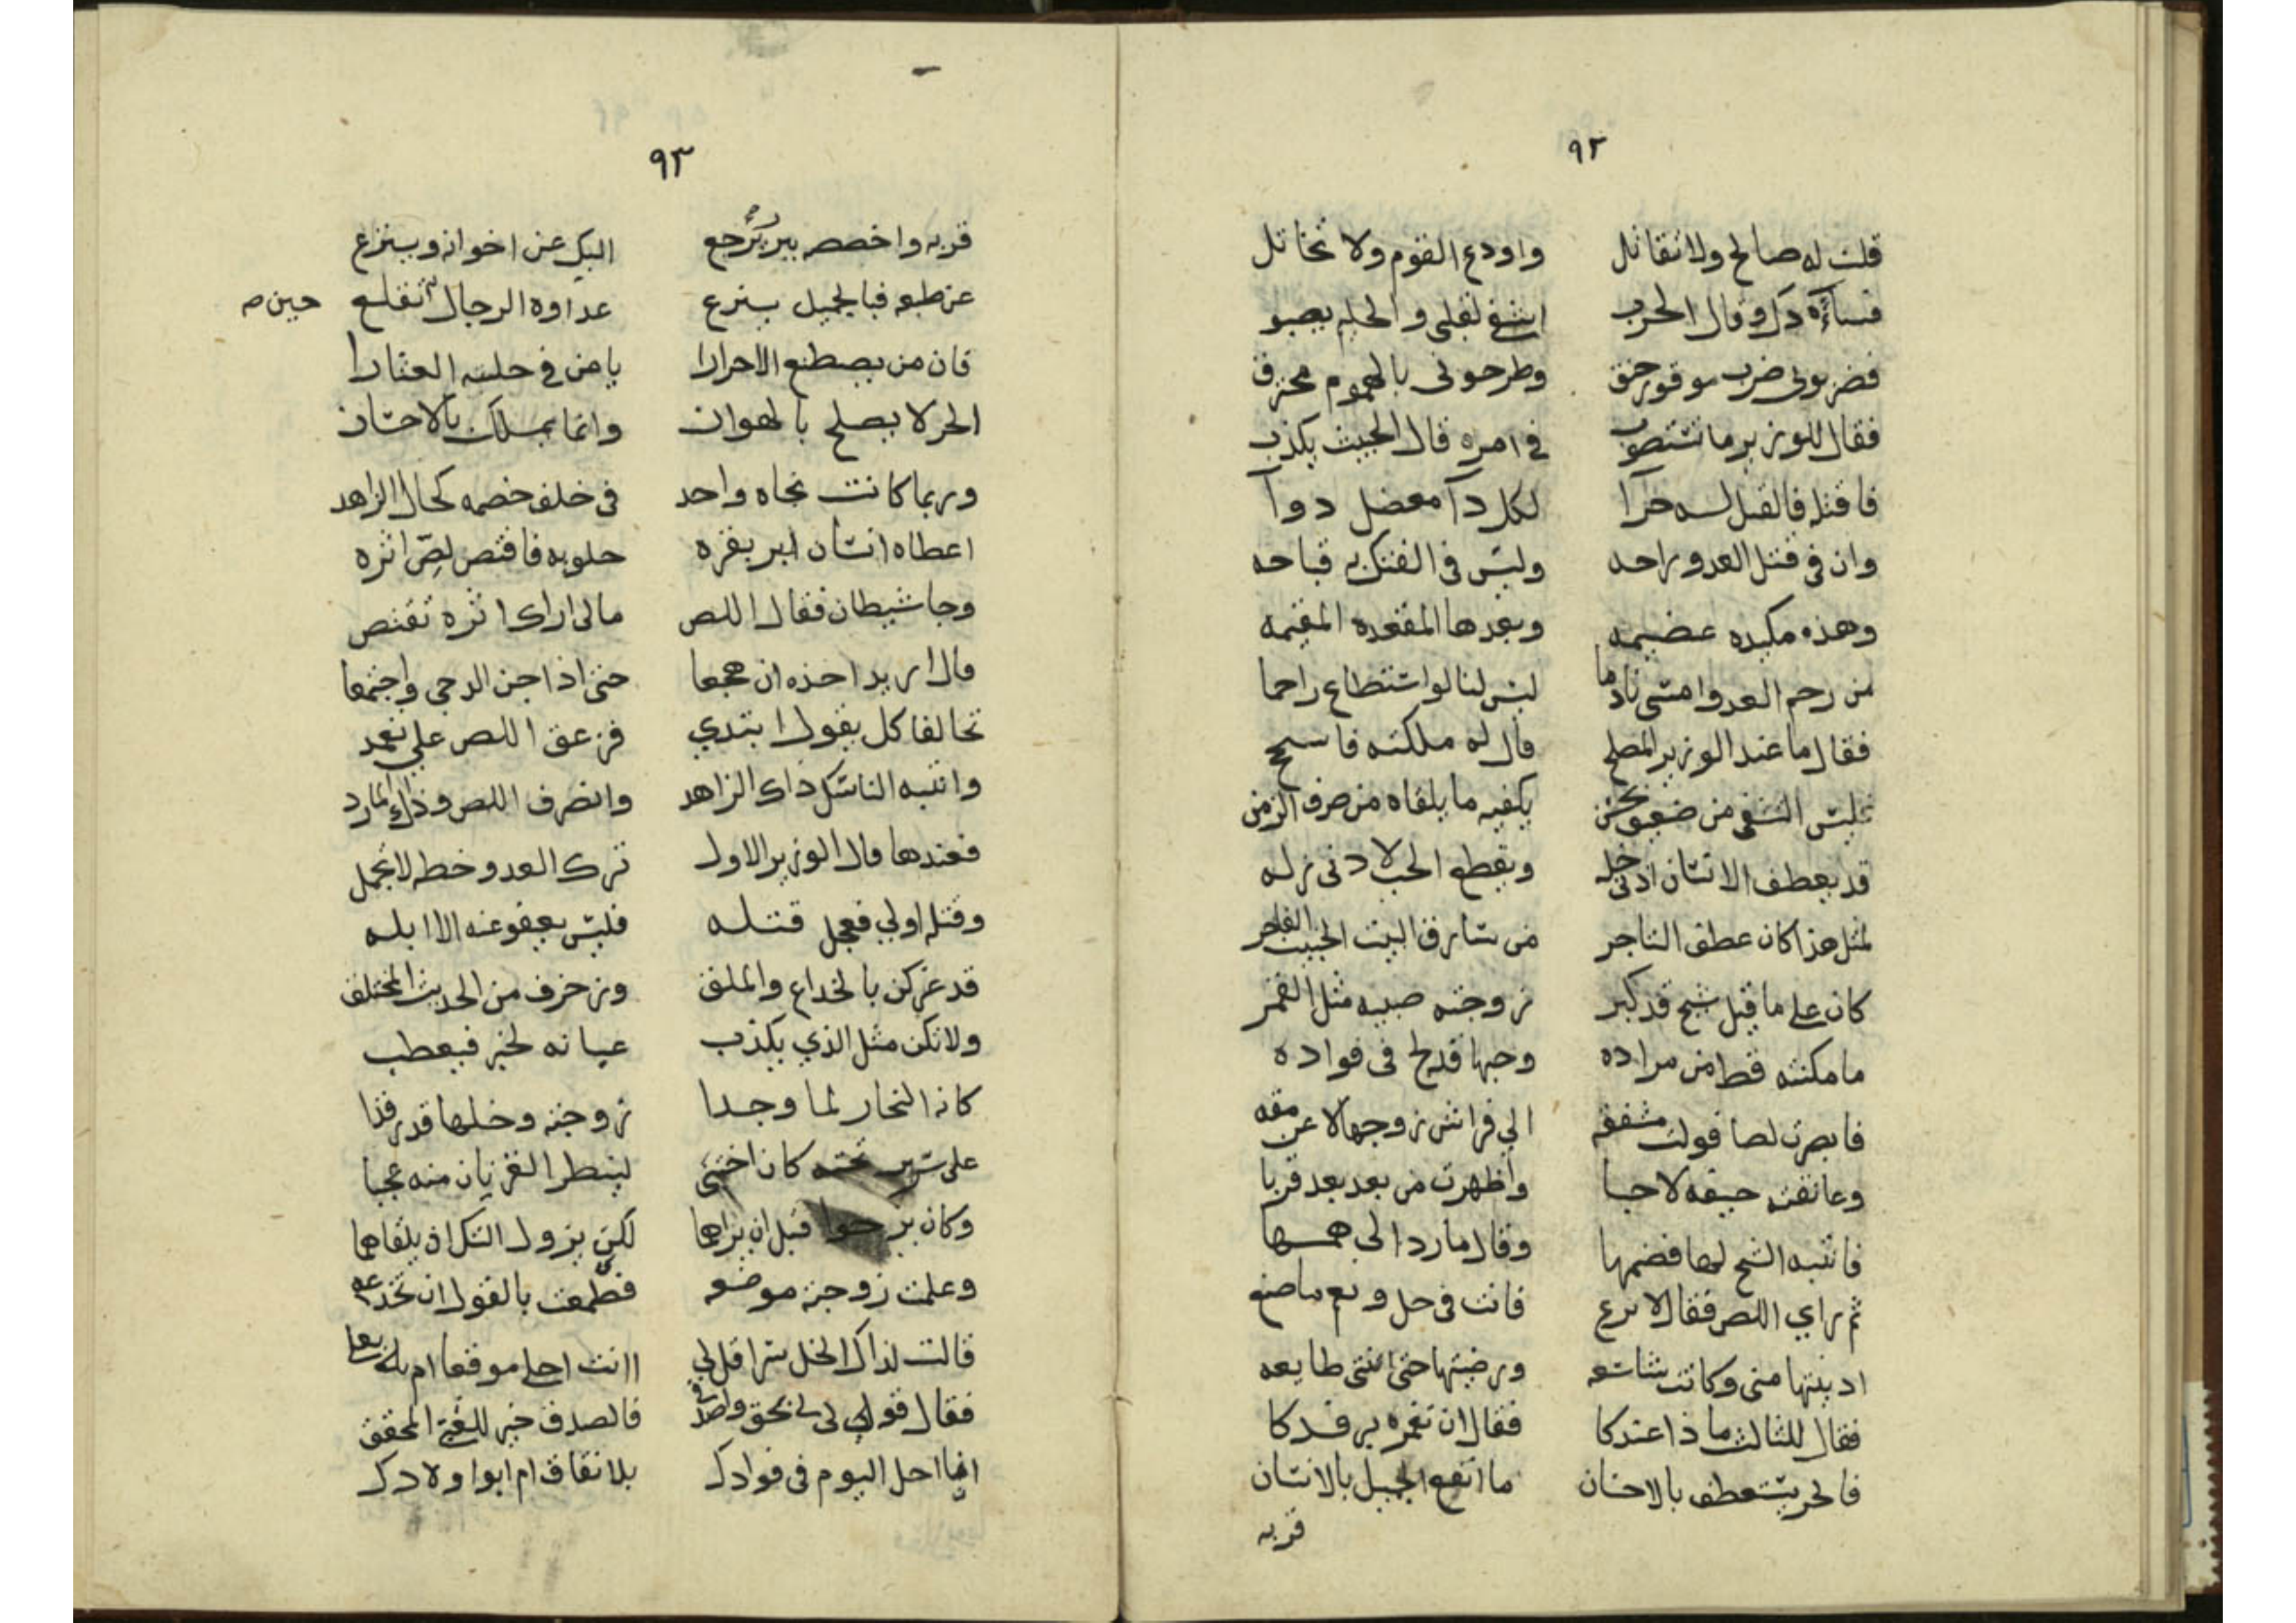 ٩٢
قلت له صالح ولا تقاتل واودع القوم ولا تخاتل
فساءه ذاك وقال الحرب اشفى لقلبي والحليم يصبو
فضربوني ضرب موقور حنق وطرحوني بالهموم محترق
فقال للوزير ما تستصوب في امره قال الخبيث يكذب
فاقتله فالقتل لسه حرآ لكل دآ معضل دوآ
وان في قتل العدو راحه وليس في الفتك به قباحه
وهذه مكيده عضيمه وبعدها المقعده المقيمه
من رحم العدو امسى نادما ليس لنا لو استطاع راحما
فقال ما عند الوزير المصلح قال له ملكته فاسجح
فليس التشفي من ضعيف ممتحن يكفيه ما يلقاه من صرف الزمن
قد يعطف الانسان ادنى خله ويقطع الحب لادنى زله
لمثل هذا كان عطف التاجر من سارق البيت الخبيث الفاجر
كان على ما قيل شيخ قد كبر زوجته صبيه مثل القمر
ما مكنته قط من مراده وحبها قد لج في فواده
فابصرت لصا فولت مشفقه الي فراش زوجها لا عن مقه
وعانقته خيفه لا حبا واظهرت من بعد بعد قربا
فانتبه الشيخ لها فضمها وقال ما رد الى همها
ثم راي اللص فقال لا ترع فانت في حل ونعم ما صنع
ادنيتها مني وكانت شاسعه ورضيتها حتى اتتني طايعه
فقال للثالث ماذا عندكا فقال ان تغمره برفدكا
فالحر يستعطف بالاحسان ما انفع الجميل بالانسان
قربه
٩٣
قربه واخصصه ببر يرجع اليك عن اخوانه وينزع
عن طبعه فبالجميل ينزع عداوة الرجال تنقلع حين صـ
فان من يصطنع الاحرارا يامن في حلبته العثارا
الحر لا يصلح بالهوان وانما يملك بالاحسان
وربما كانت نجاه واحد في خلف خصمه كحال الزاهد
اعطاه انسان لبر بقره حلوبه فاقتص لص اثره
وجا شيطان فقال اللص مالي اراك اثره تقتص
قال اريد اخذه ان هجعا حتى اذا جن الدجى واجتمعا
تخالفا كل يقول ابتدي فزعق اللص علي تعمد
وانتبه الناسك ذاك الزاهد وانصرف اللص وذاك المارد
فعندها قال الوزير الاول ترك العدو خطه لا تجمل
وقتله اولي فعجل قتله فليس يعفو عنه الا ابله
قد غركن بالخداع والملق وزخرف من الحديث المختلق
ولا تكن مثل الذي يكذب عيانه لخبر فيعطب
كانه النجار لما وجدا زوجته وخلها قد رقدا
على سرير تحته كان اختبى لينظر القرنان منه عجبا
وكان يرجوا قبل ان يراهما لكن يزول الشك اذ يلقاهما
وعلمت زوجته موضعه فطمعت بالقول ان تخدعه
قالت لذاك الخل سرا قل لي اانت احلى موقعا ام بعلي
فقال قولي لي بحق واصدقي فالصدق خير للفتى المحقق
انما احل اليوم في فوادك بلا نفاق ام ابوا ولادك